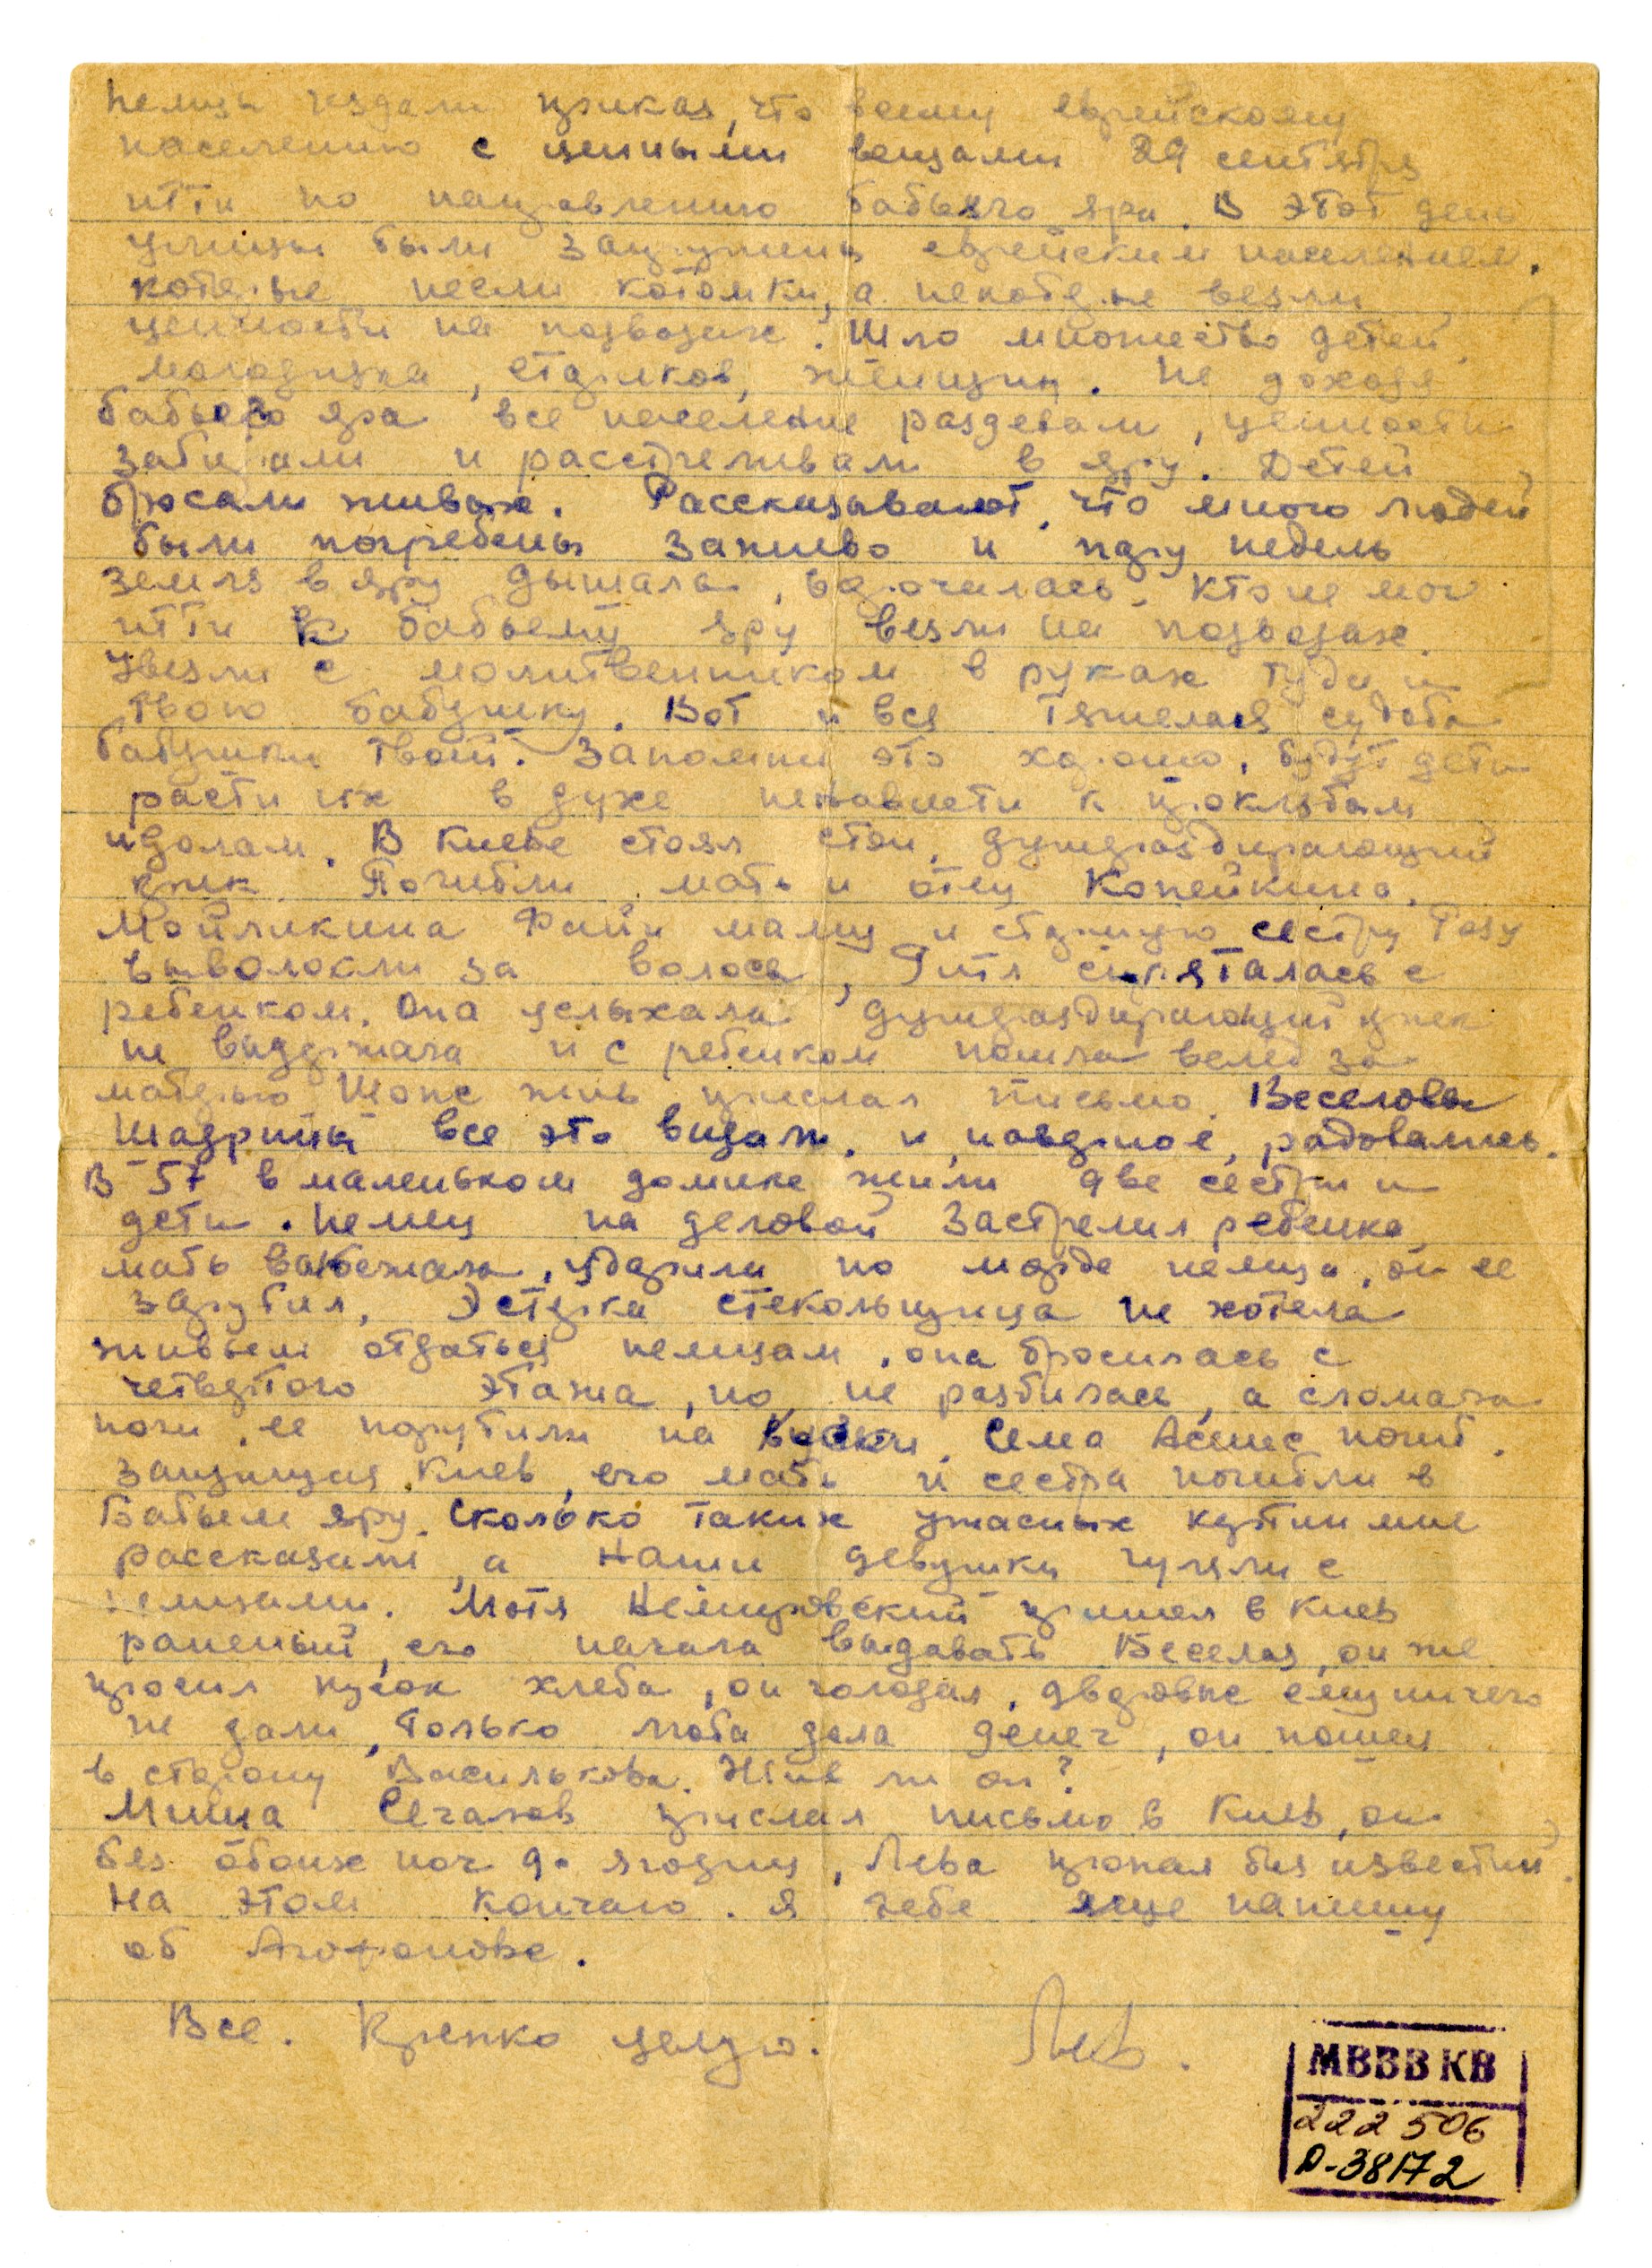 Немцы издали приказ, что всему еврейскому
населению с ценными вещами 29 сентября
итти по направлению Бабьего яра. В этот день
улицы были запружены еврейским населением,
которые несли котомки, а некоторые везли
ценности на подводах. Шло множество детей,
молодежи, стариков, женщин. Не доходя
Бабьего яра все население раздевали, ценности
забирали и расстреливали в яру. Детей
бросали живых. Рассказывают, что много людей
были погребены заживо и пару недель
земля в яру дышала, ворочалась. Кто не мог
итти к Бабьему яру везли на подводах.
Увезли с молитвенником в руках туда и
твою бабушку. Вот и вся тяжелая судьба
бабушки твоей. Запомни это хорошо, будут дети
расти их в духе ненависти к проклятым
идолам. В Киеве стоял стон, душераздирающий
крик. Погибли мать и отец Копейкина.
Мойликина Файн маму и старшую сестру Розу
выволокли за волосы, Гитя спряталась с
ребенком. Она услыхала душераздирающий крик
не выдержала и с ребенком пошла вслед за
матерью. Шопс жив прислал письмо. Веселовы
Шадрины все это видели, и, наверное, радовались.
В 57 в маленьком домике жили две сестры и
дети. Немец на деловой застрелил ребенка,
мать выбежала, ударили по морде немца, он ее
зарубил. Эстерка стекольщица не хотела
живьем отдаться немцам, она бросилась с
четвертого этажа, но не разбилась, а сломала
ноги, ее порубили на куски. Сема погиб,
защищая Киев, его мать и сестра погибли в
Бабьем яру. Сколько таких ужасных картин мне
рассказали, а наши девушки гуляли с
немцами. Мотя Немировский пришел в Киев
раненый, его начала выдавать Веселая, он же
просил кусок хлеба, он голодал, дворовые ему ничего
не дали, только Люба дала денег, он пошел
в сторону Василькова. Жив ли он?
Миша Сегалов прислал письмо в Киев, он
без обоих ног до ягодиц, Лева пропал без известий.
На этом кончаю. Я тебе еще напишу
об Агафонове.
Все. Крепко целую. Лев.
МВВВ КВ
222506
Д-38172